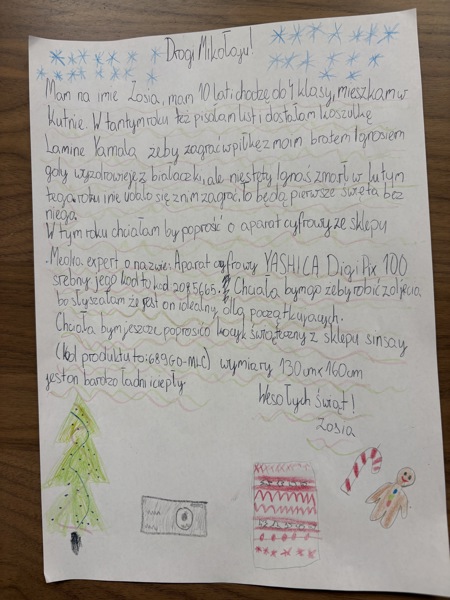 Drogi Mikołaju!
Mam na imie Zosia, mam 10 lat i chodzę do 4 klasy, mieszkam w
Kutnie. W tamtym roku też pisałam list i dostałam koszulkę
Lamine Yamala żeby zagrać w piłkę z moim bratem Ignasiem
gdy wyzdrowieje z białaczki, ale niestety Ignaś zmarł w lutym
tego roku i nie udało się z nim zagrać. To będą pierwsze święta bez
niego.
W tym roku chciałam by poprosić o aparat cyfrowy ze sklepu
Media expert o nazwie: Aparat cyfrowy YASHICA DigiPix 100
srebrny jego kod to kod 2085665. Chciała bym go żeby robić zdjęcia
bo słyszałam że jest on idealny dla początkujących.
Chciała bym jeszcze poprosić o kocyk świąteczny z sklepu sinsay
(kod produktu to: 689GO-MLC) wymiary 130cm x 160cm
jest on bardzo ładni i ciepły
Wesołych Świąt!
Zosia